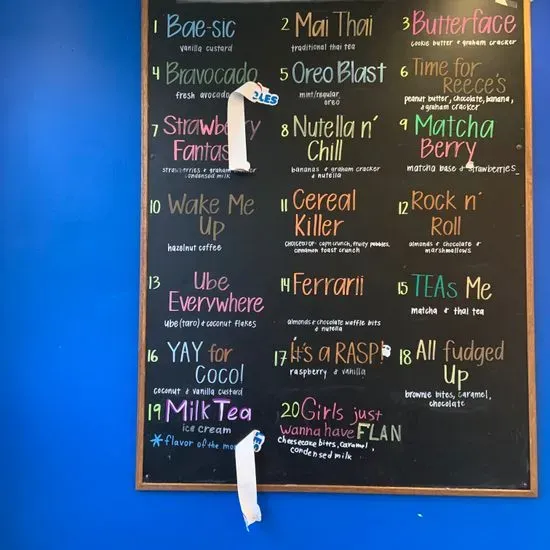 1 Bae-sic
vanilla custard
2 Mai Thai
traditional thai tea
3 Butterface
cookie butter + graham cracker
4 Bravocado
fresh avocado
5 Oreo Blast
mint/regular
oreo
6 Time for
Reece's
peanut butter, chocolate, banana,
+ graham cracker
7 Strawberry
Fantasy
strawberries + graham cracker
condensed milk
8 Nutella n'
Chill
bananas + graham cracker
+ nutella
9 Matcha
Berry
matcha base + strawberries
10 Wake Me
Up
hazelnut coffee
11 Cereal
Killer
choice of: capn crunch, fruity pebbles,
cinnamon toast crunch
12 Rock n'
Roll
almonds + chocolate +
marshmallows
13 Ube
Everywhere
ube (taro) + coconut flakes
14 Ferrarii
almonds + chocolate waffle bits
+ nutella
15 TEAs Me
matcha + thai tea
16 YAY for
COCO!
coconut + vanilla custard
17 it's a RASP!
raspberry + vanilla
18 All fudged
Up
brownie bites, caramel,
chocolate
19 Milk Tea
ice cream
*flavor of the
20 Girls just
wanna have FLAN
cheesecake bites, caramel,
condensed milk